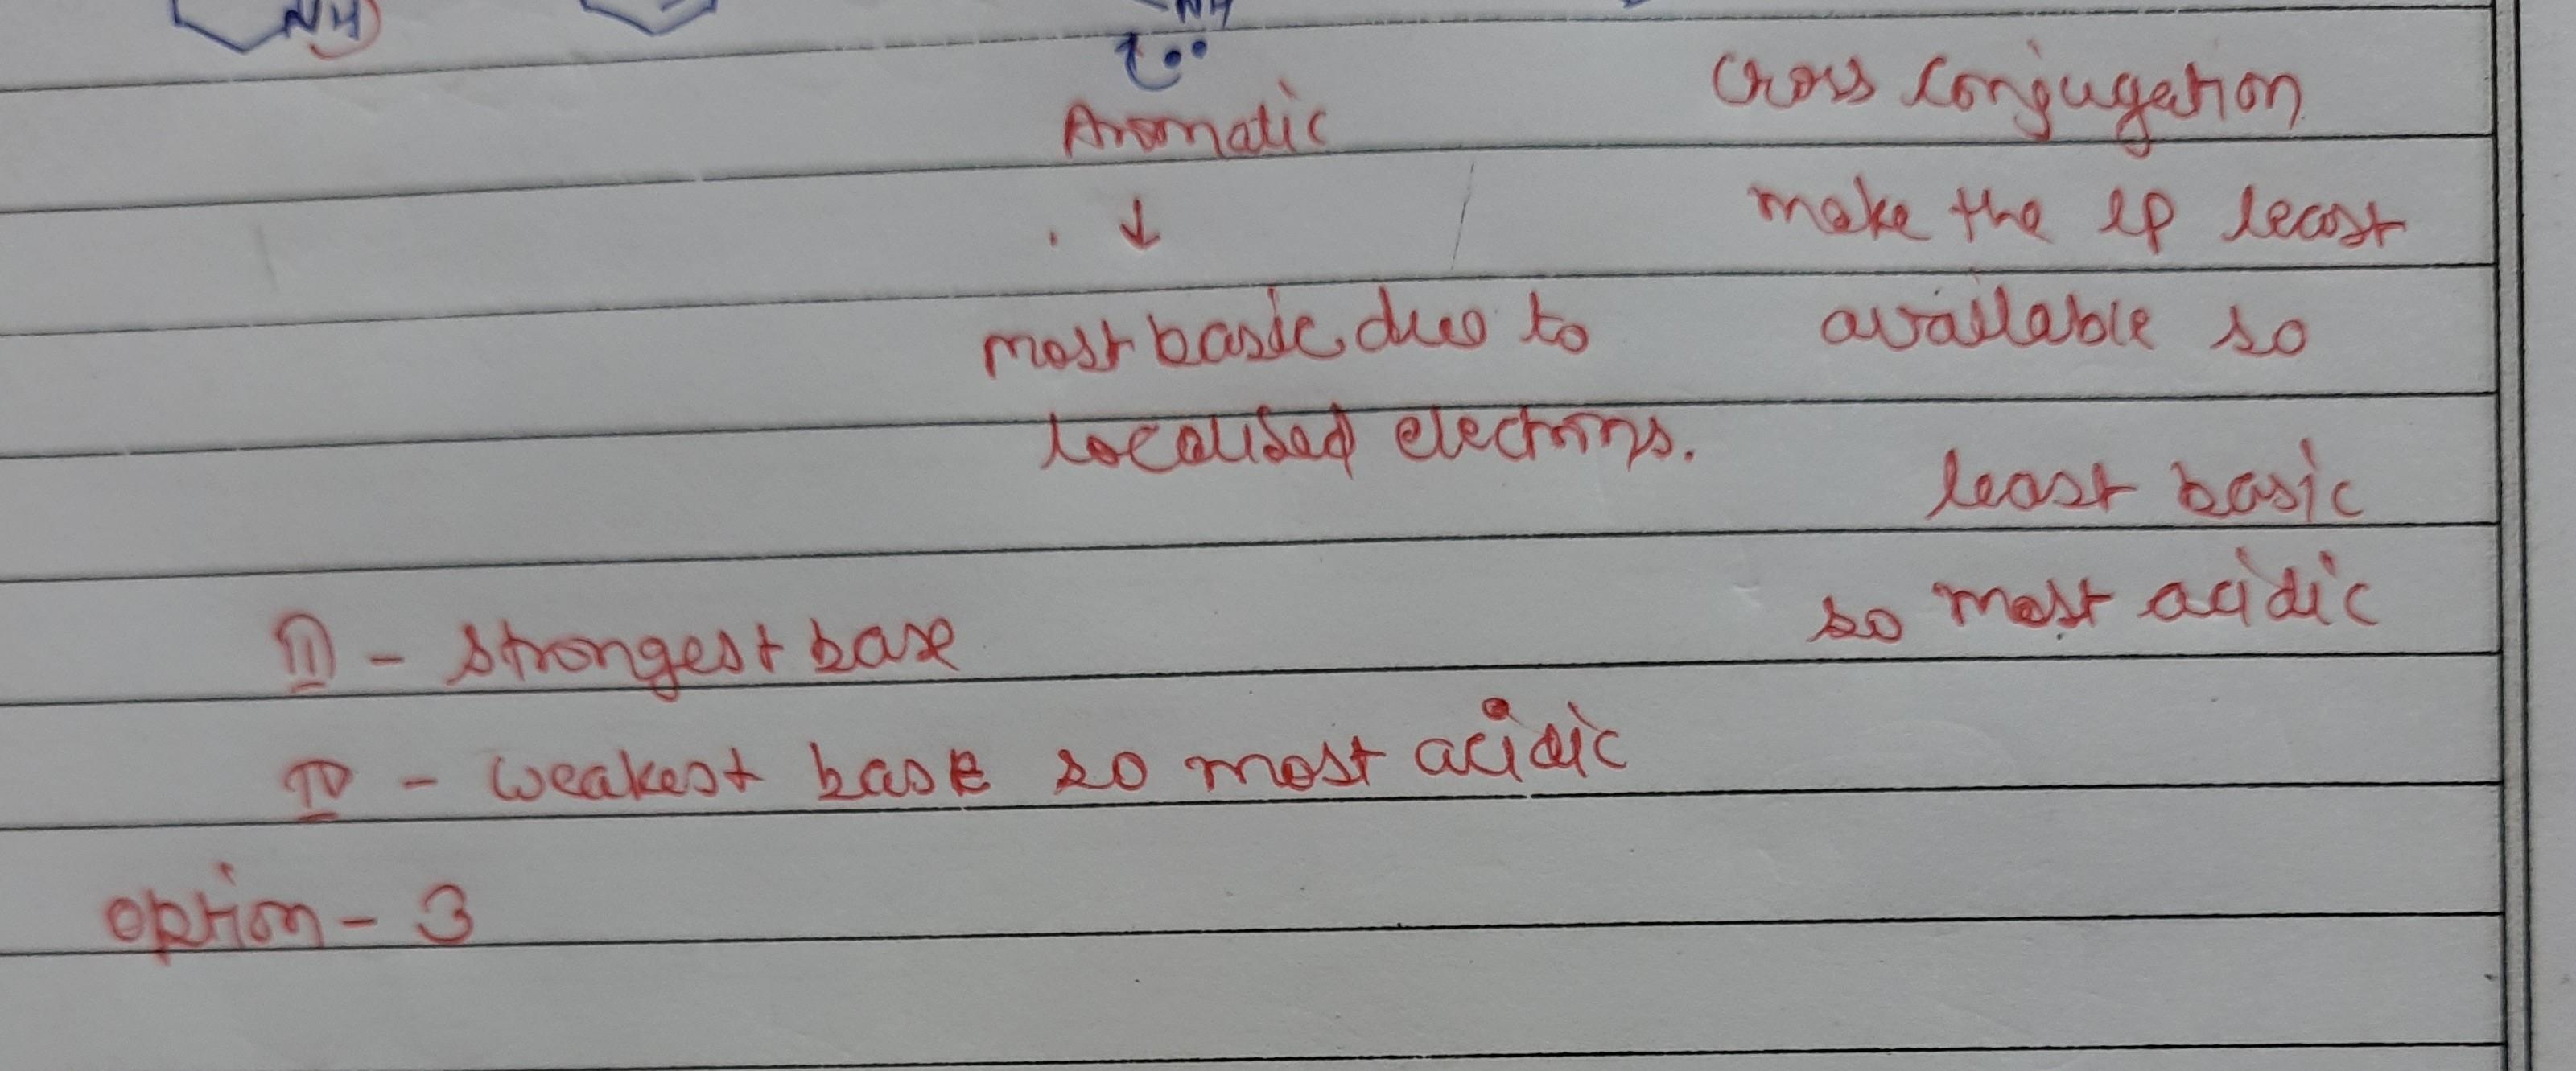 NH
NH
Aromatic
↓
most basic due to
localised electrons.
cross conjugation
make the lp least
available so
least basic
so most acidic
II - strongest base
IV - weakest base so most acidic
option - 3